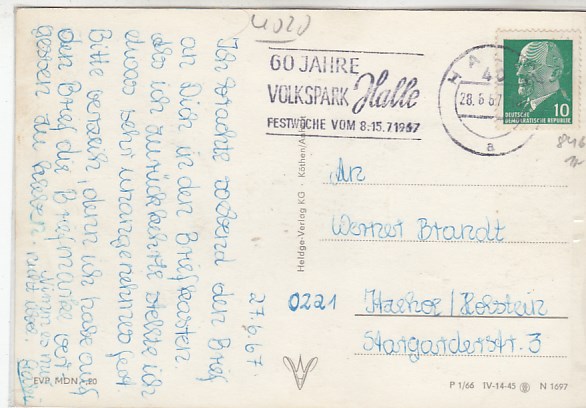 4020
60 JAHRE
VOLKSPARK Halle
FESTWOCHE VOM 8.-15.7.1967
HALLE
40
28.6.67
a
10
DEUTSCHE
DEMOKRATISCHE REPUBLIK
An
Werner Brandt
0221 Itzehoe/Holstein
Stargarderstr. 3
27.6.67.
Ich brachte soeben den Brief
an Dich in den Briefkasten.
Als ich zurückkehrte stellte ich
etwas sehr unangenehmes fest.
Bitte verzeih, denn ich habe auf
den Brief die Briefmarke ver-
gessen zu kleben.
Heldge-Verlag KG · Köthen/Anh.
EVP MDN -.20
P 1/66 IV-14-45 N 1697